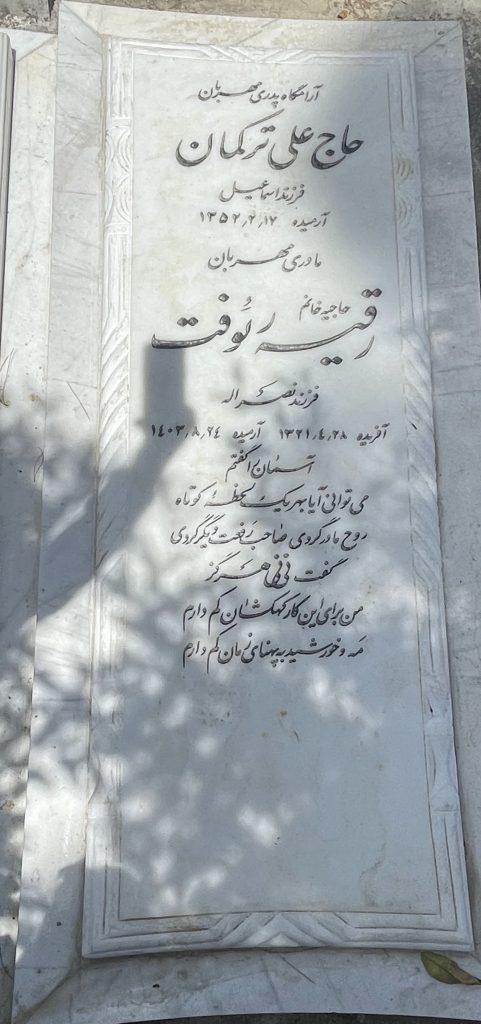 آرامگاه پدری مهربان
حاج علی ترکمان
فرزند اسماعیل
آرمیده ۱۳۵۲٫۲٫۱۲
مادری مهربان
حاجیه خانم
رقیه رئوفت
فرزند نصراله
آفریده ۱۳۲۱٫۴٫۲۸ آرمیده ۱۴۰۳٫۸٫۲۴
آسمان را گفتم
می توانی آیا بهر یک لحظۀ کوتاه
روح مادر گردی صاحب رفعت دیگر گردی
گفت نی نی هرگز
من برای این کار کهکشان کم دارم
مه و خورشید به پهنای زمان کم دارم